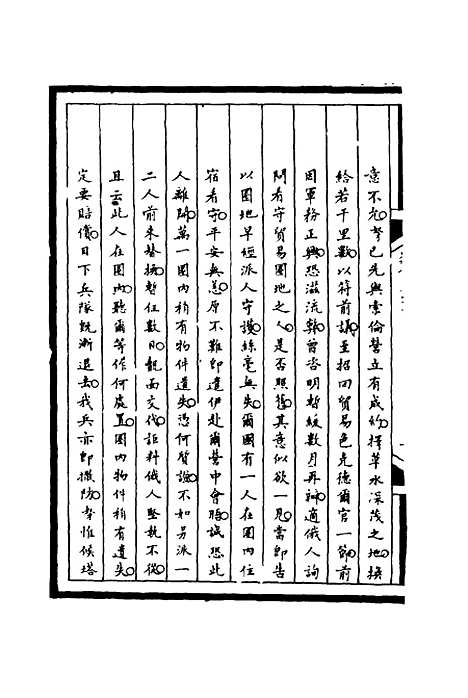 意不允考已先與索倫營立有成約擇草水深茂之地撥
給若干里數以符前議至招回貿易色克德爾官一節前
因軍務正興恐滋流弊曾咨明暫緩數月再辦適俄人詢
問看守貿易圈地之人是否照舊其意似欲一見當即告
以圈地早經派人守護絲毫無失爾國有一人在圈內住
宿看守平安無恙原不難即遣伊赴爾營中會晤誠恐此
人離歸萬一圈內稍有物件遺失憑何質證不如另派一
二人前來替換暫住數日覿面交代詎料俄人堅執不從
且云此人在圈內聽爾等作何處置圈內物件稍有遺失
定要賠償目下兵隊既漸退去我兵亦即撤防李惟候塔